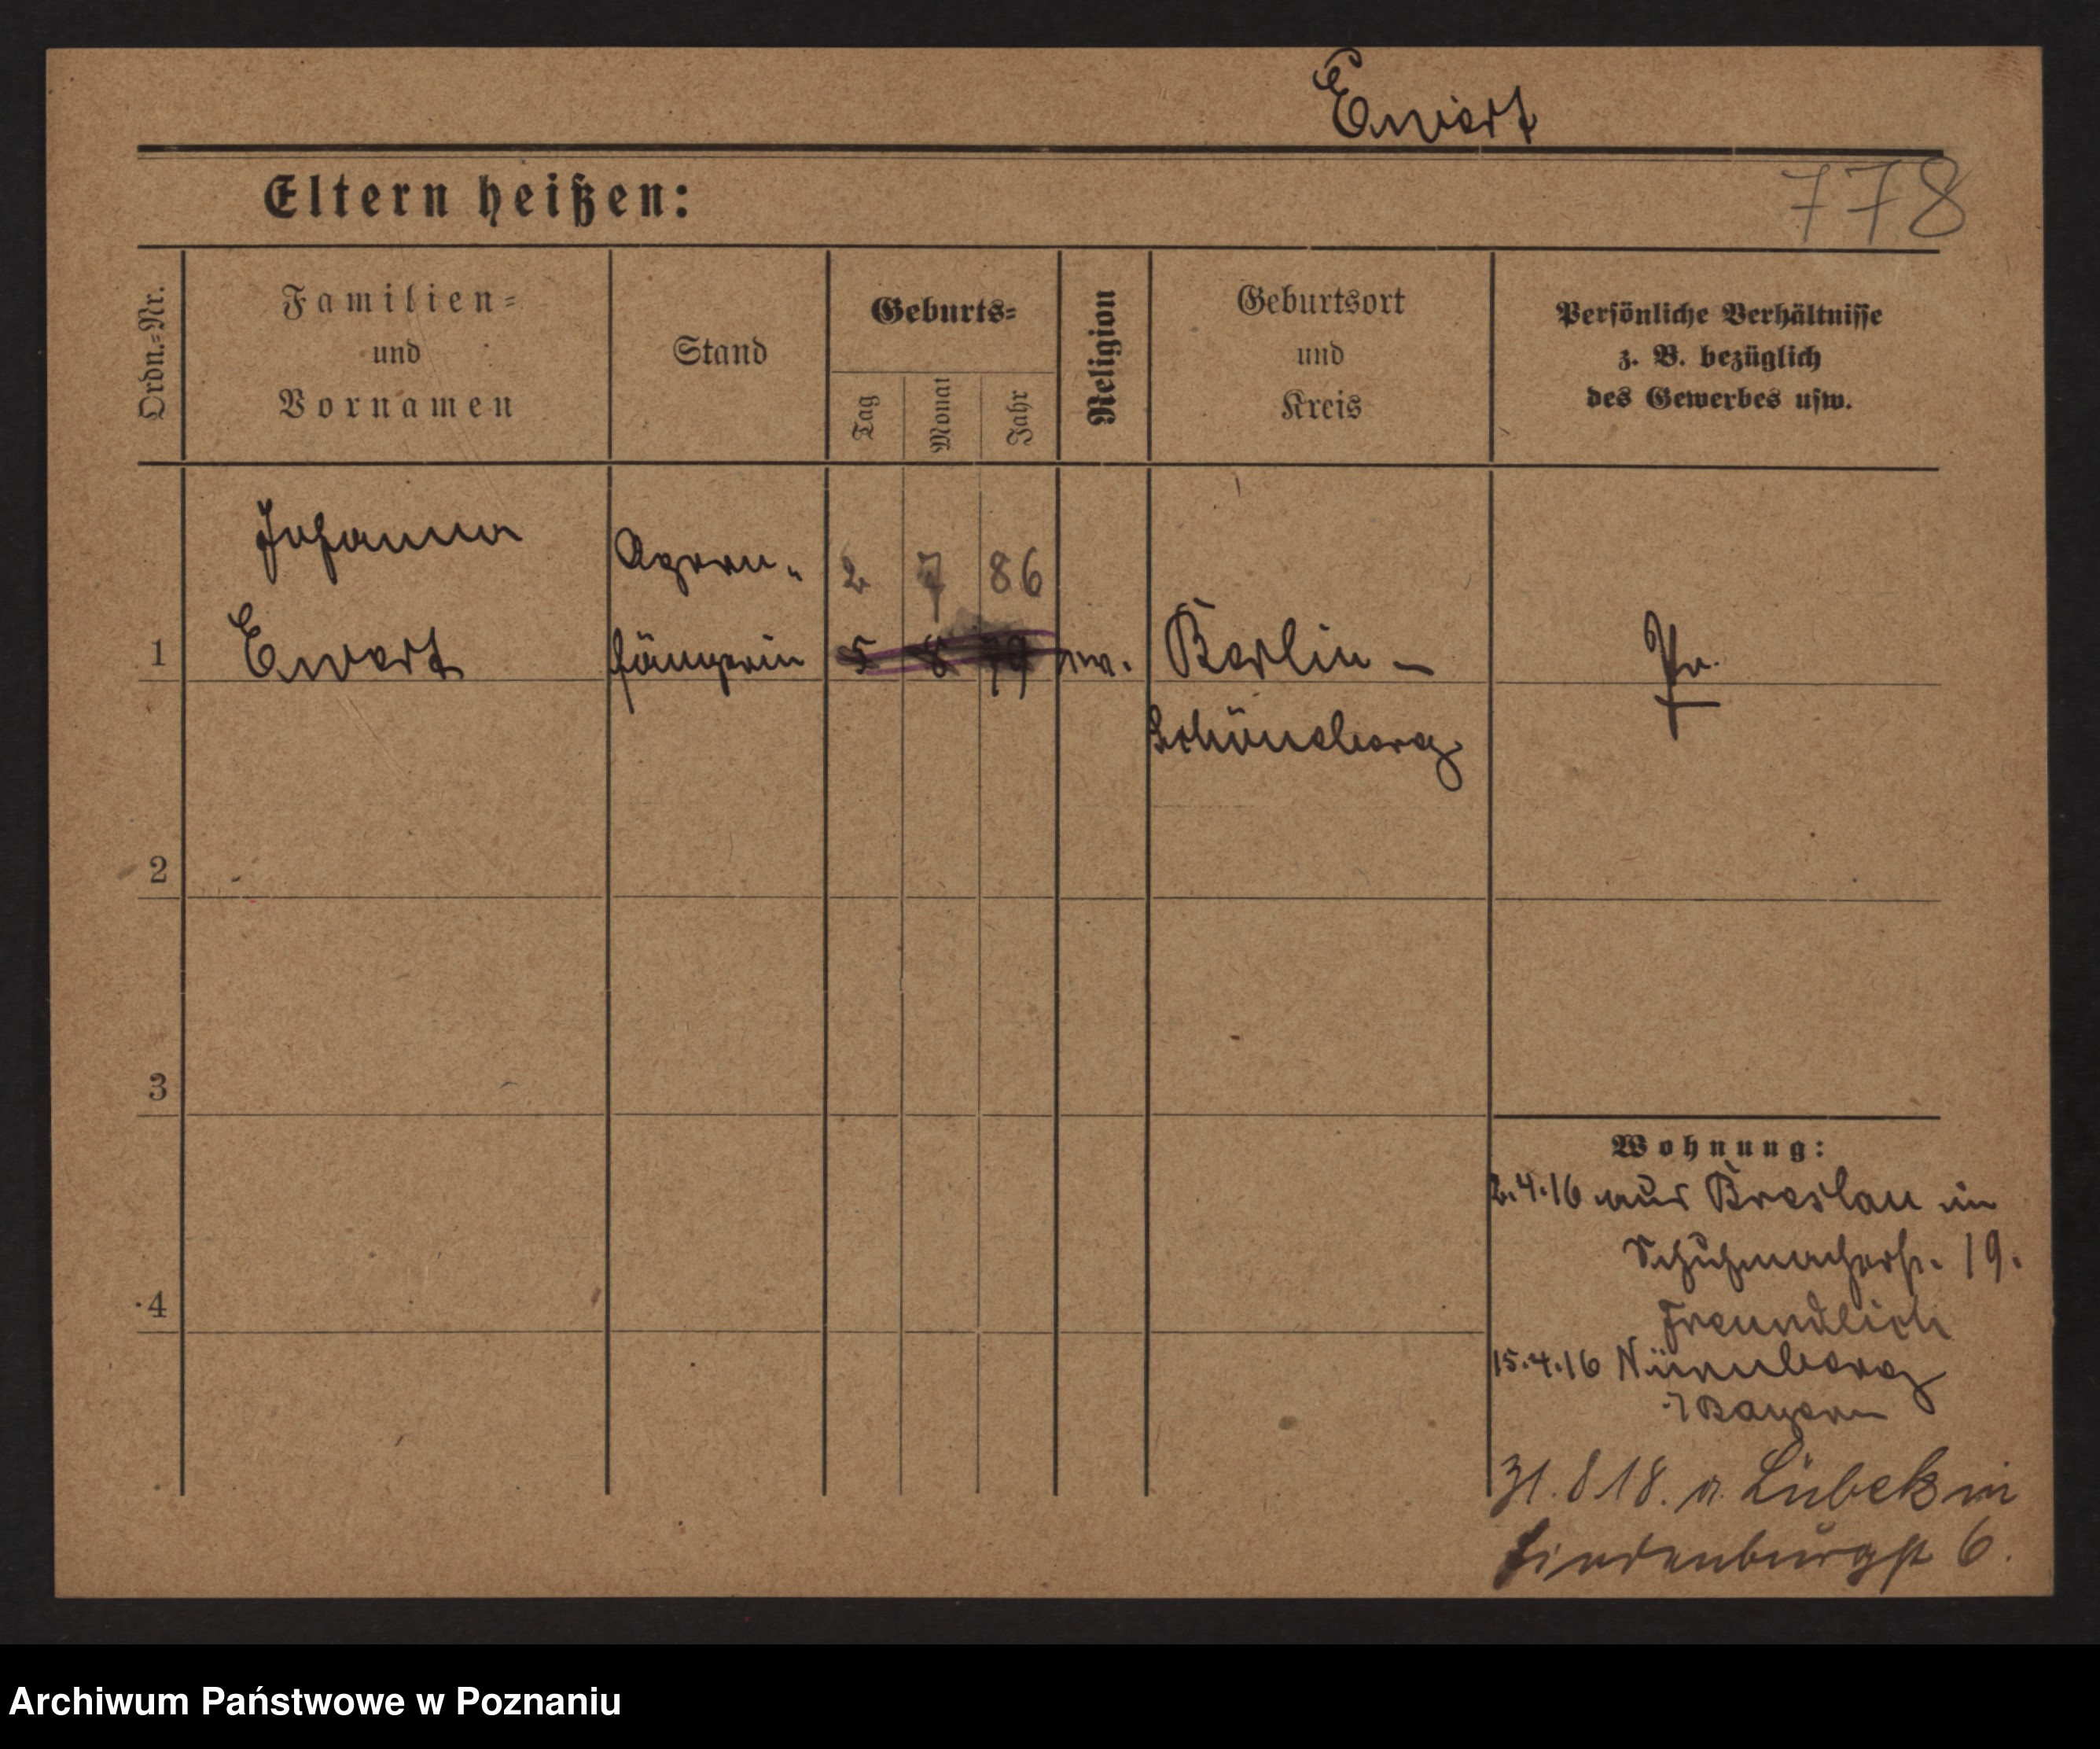 Ewert
Eltern heißen:
778
Ordn.-Nr.
Familien-
und
Vornamen
Stand
Geburts-
Tag
Monat
Jahr
Religion
Geburtsort
und
Kreis
Persönliche Verhältnisse
z. B. bezüglich
des Gewerbes usw.
Johanna
Ewert
Opern-
sängerin
2 7 86
5 8 79
ev.
Berlin -
Schöneberg
Pr.
1
2
3
4
Wohnung:
2.4.16 aus Breslau in
Schuhmacherst. 19.
Freundlich
15.4.16 Nürnberg
i Bayern
31.8.18. n. Lübek in
Hindenburgst 6.
Archiwum Państwowe w Poznaniu